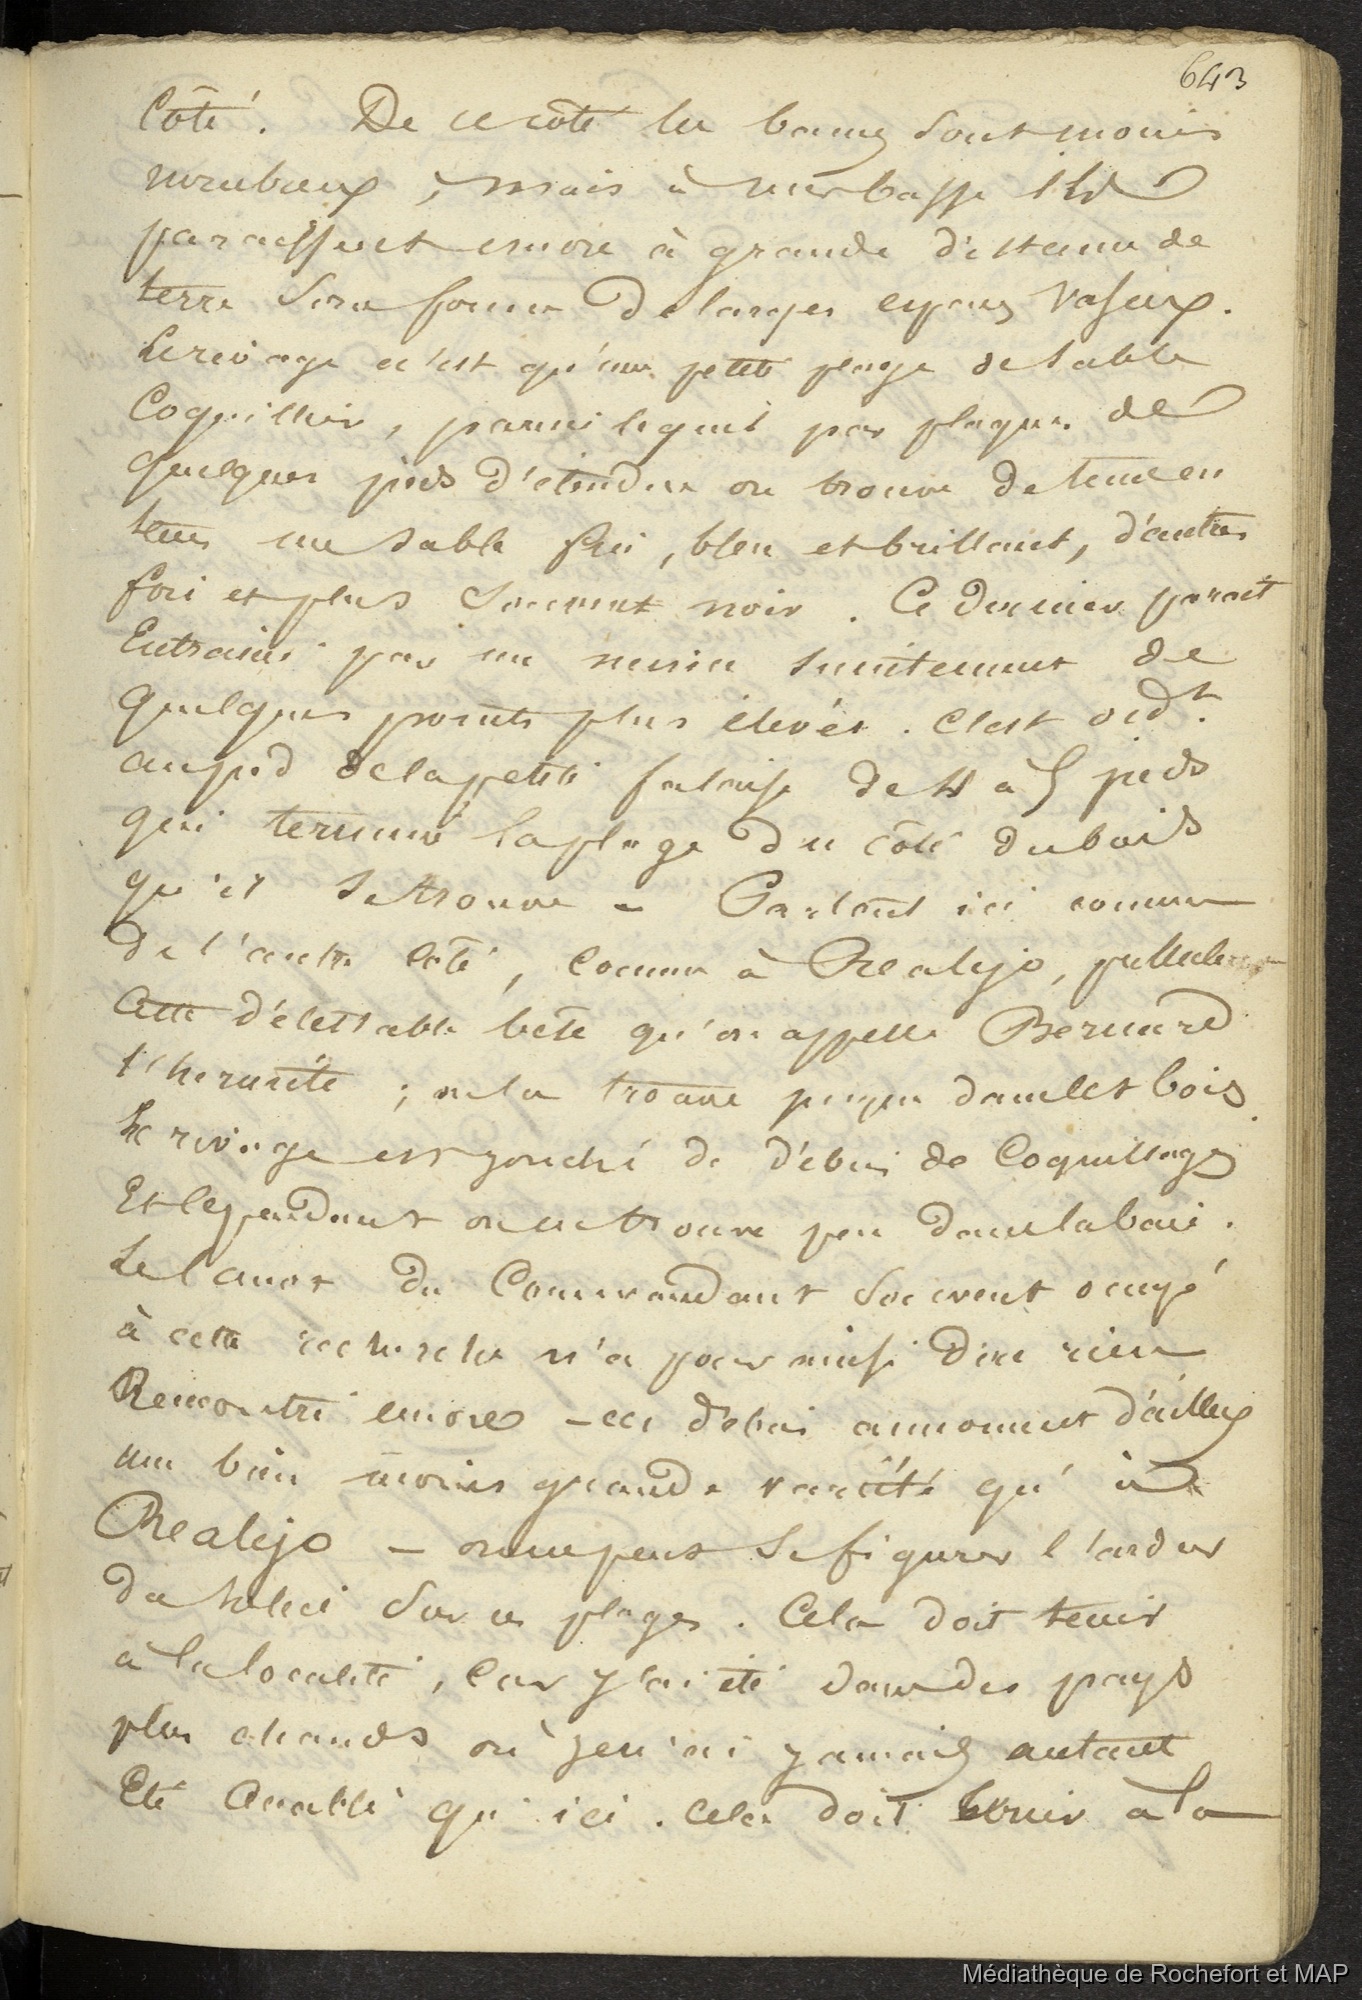 643
Côté. De ce côté les bancs sont moins
nombreux, mais à mer basse ils
paraissent encore à grande distance de
terre sous forme de larges espaces vaseux.
Le rivage n'est qu'une petite plage de sable
Coquillier, parmi lequel par plaques de
quelques pieds d'étendue on trouve de tems en
tems un sable fin, bleu et brillant, d'autres
fois et plus souvent noir. Ce dernier parait
Entrainé par un mince suintement de
quelques points plus élevés. C'est ord.t
au pied de la petite falaise de 4 à 5 pieds
qui termine la plage du côté du bois
qu'il se trouve - Partout ici comme
de l'autre côté, comme à Realejo, pullule
Cette détestable bête qu'on appelle Bernard
l'hermite ; on la trouve jusque dans les bois.
Le rivage est jonché de débris de Coquillages
Et cependant on en trouve peu dans la baie.
Le Canot du Commandant souvent occupé
à cette recherche n'a pour ainsi dire rien
Rencontré encore - ces débris annoncent d'ailleurs
une bien moins grande variété qu'à
Realejo - on ne peut se figurer l'ardeur
du soleil sur ces plages. Cela doit tenir
à la localité, Car j'ai été dans des pays
plus chauds où je n'ai jamais autant
Eté accablé qu'ici. Cela doit tenir à la
Médiathèque de Rochefort et MAP